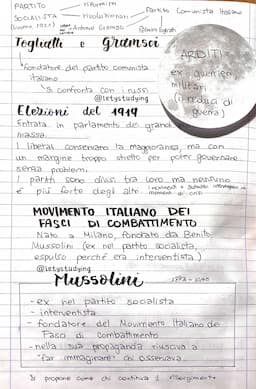 PARTITO
SOCIALISTA
riformisti
rivoluzionari
Partito Comunista Italiano
Antonio Gramsci
Togliatti e Gramsci
fondatori del partito comunista
italiano
si confronta con i russi
@letystudying
ARDITI
ex guerrieri
militari
(reduci di
guerra)
Elezioni del 1919
Entrata in parlamento dei grandi
massa.
I liberali conservano la maggioranza, ma con
un margine troppo stretto per poter governare
senza problemi
I partiti sono divisi tra loro ma nessuno
è più forte degli altri
MOVIMENTO ITALIANO DEI
FASCI DI COMBATTIMENTO
Nato a Milano, fondato da Benito
Mussolini (ex nel partito socialista,
espulso perché era interventista)
@letystudying
Mussolini
- ex nel partito socialista
- interventista
- fondatore del Movimento Italiano dei
Fasci di Combattimento
- nella sua propaganda riusciva a
"far immaginare" chi osservava.
Si propone come chi continua il Risorgimento